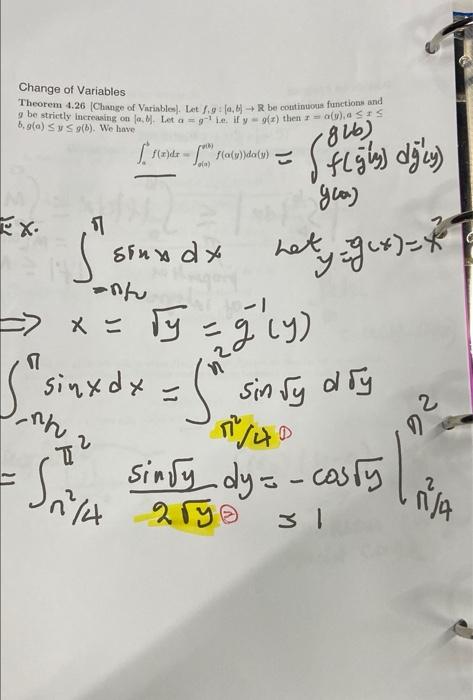 Change of Variables
Theorem 4.26 [Change of Variables]. Let f, g : [a, b] → R be continuous functions and
g be strictly increasing on [a, b]. Let α = g⁻¹ i.e. if y = g(x) then x = α(y), a ≤ x ≤
b, g(a) ≤ y ≤ g(b). We have
∫_a^b f(x)dx = ∫_{g(a)}^{g(b)} f(α(y))dα(y) = ∫_{g(a)}^{g(b)} f(g⁻¹(y)) dg⁻¹(y)
Ex. ∫_{-π/2}^π sinx dx Let y=g(x)=x²
⇒ x = √y = g⁻¹(y)
∫_{-π/2}^π sinx dx = ∫_{π²/4 ①}^{π²} sin√y d√y
= ∫_{π²/4}^{π²} sin√y / 2√y ② dy = -cos√y |_{π²/4}^{π²}
= 1